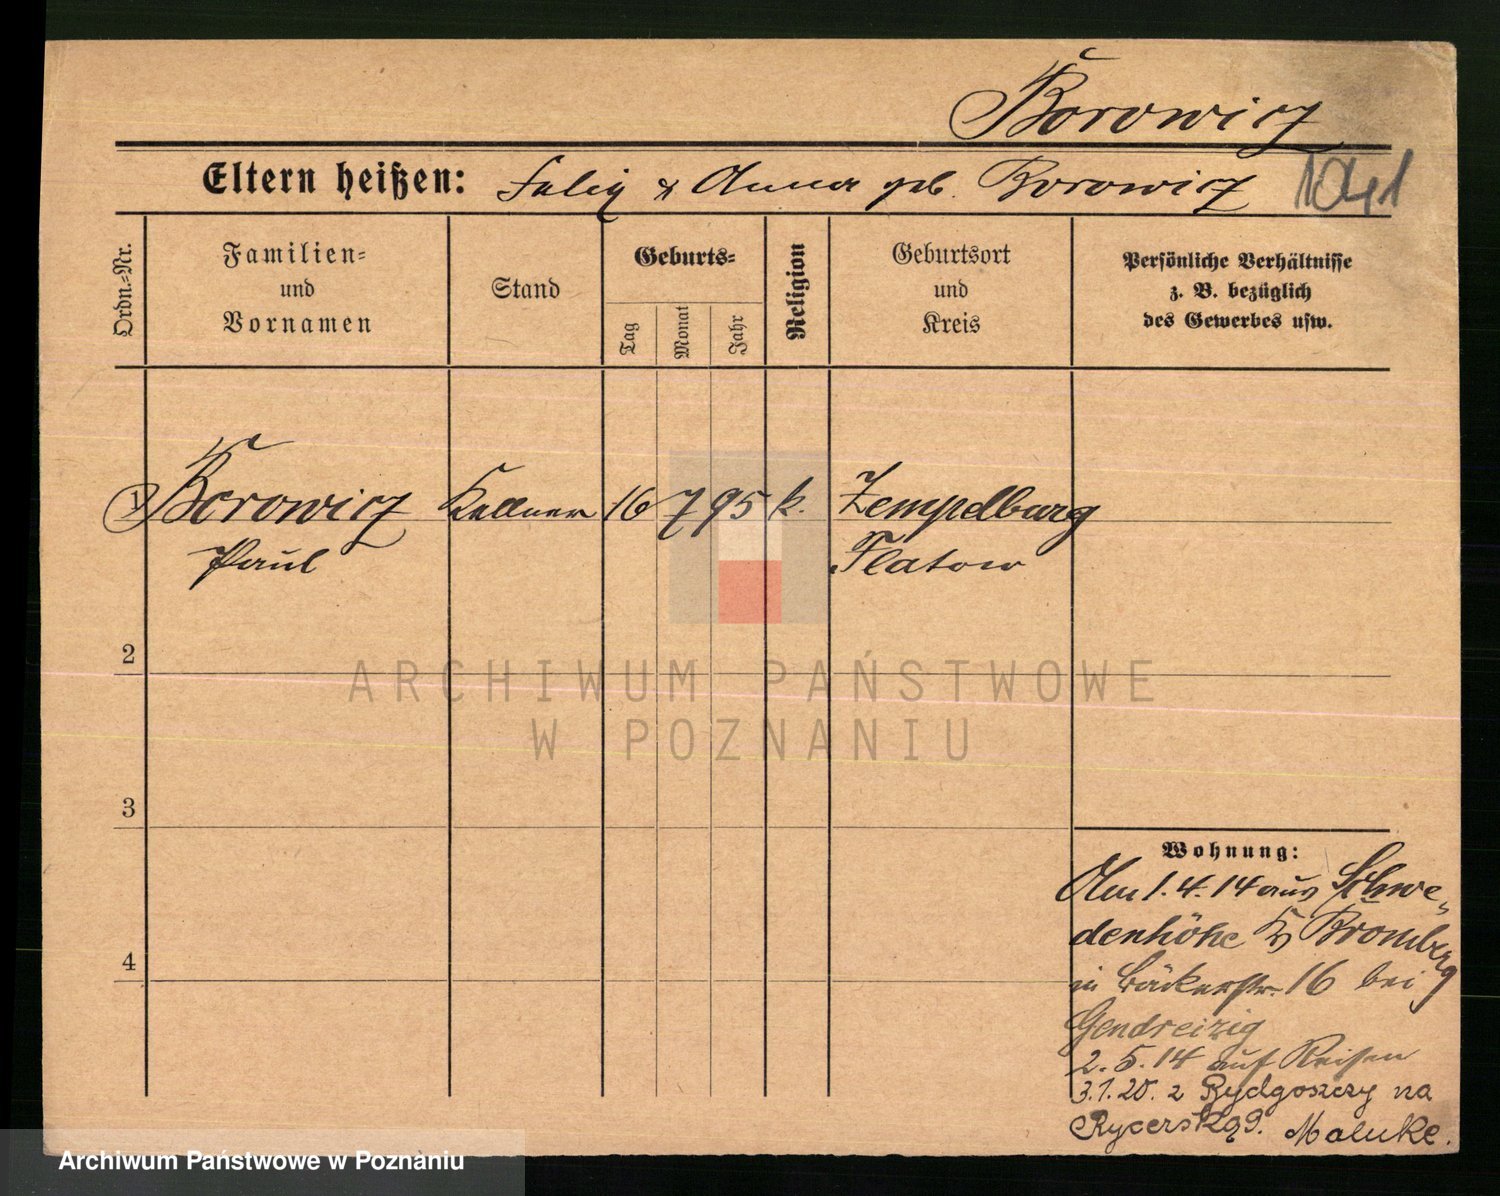 Borowicz
Eltern heißen: Felix & Anna geb. Borowicz
Ordn.=Nr.
Familien=
und
Vornamen
Stand
Geburts=
Tag
Monat
Jahr
Religion
Geburtsort
und
Kreis
Persönliche Verhältnisse
z. B. bezüglich
des Gewerbes usw.
1 Borowicz Kellner 16 7 95 k. Zempelburg
Paul Flatow
2
3
4
Wohnung:
Am 1.4.14 aus Schwe=
denhöhe Kr Bromberg
in Bäckerstr. 16 bei
Gendreizig
2.5.14 auf Reisen
3.1.20. z Bydgoszczy na
Rycerską 9. Maluke.
ARCHIWUM PAŃSTWOWE
W POZNANIU
Archiwum Państwowe w Poznaniu